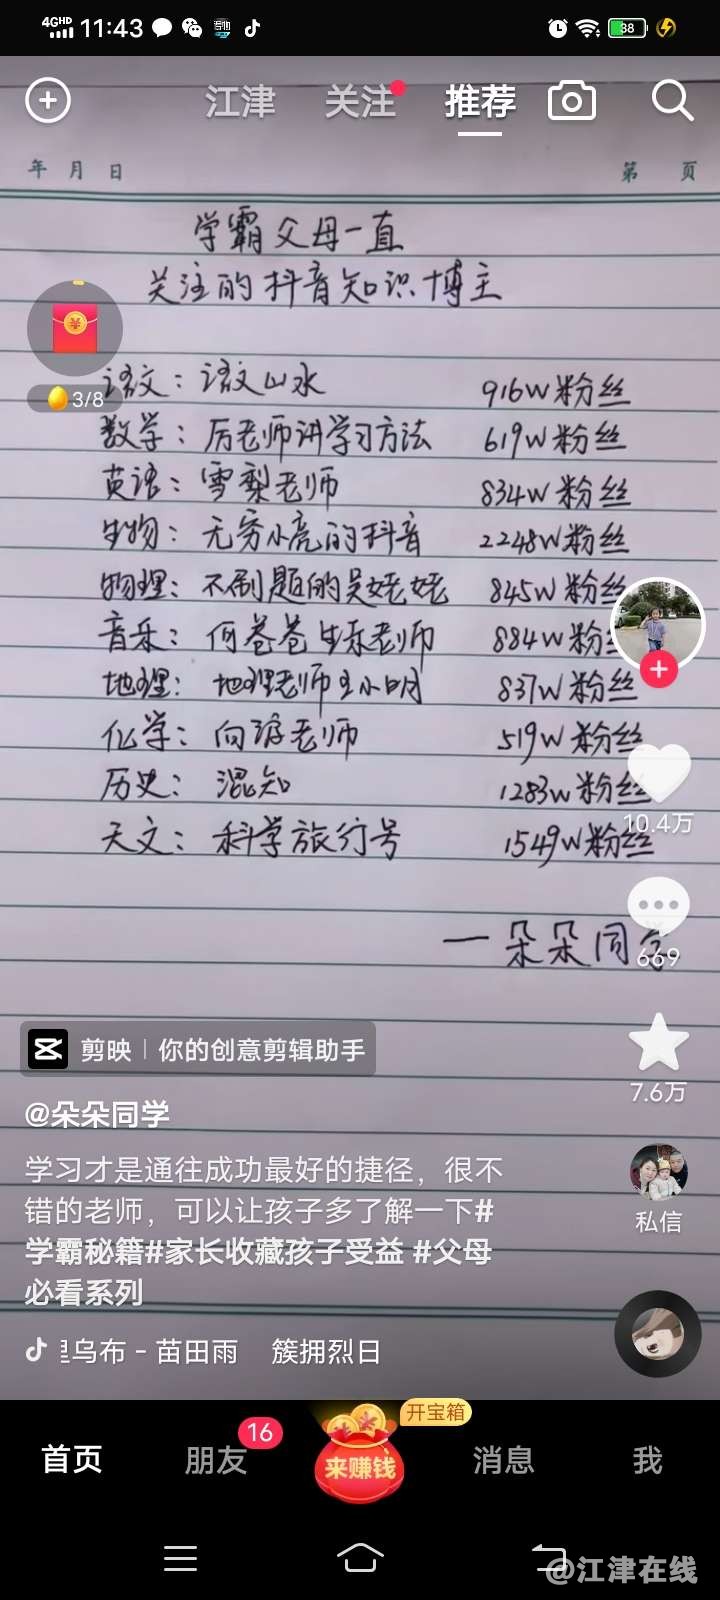 4GHD 11:43 38
江津 关注 推荐
年 月 日 第 页
学霸父母一直
关注的抖音知识博主
语文：语文山水 916W粉丝
3/8
数学：厉老师讲学习方法 619W粉丝
英语：雪梨老师 834W粉丝
生物：无穷小亮的抖音 2248W粉丝
物理：不刷题的吴姥姥 845W粉丝
音乐：何爸爸生乐老师 884W粉丝
地理：地理老师王小明 837W粉丝
化学：向游老师 519W粉丝
历史：混知 1283W粉丝
10.4万
天文：科学旅行号 1549W粉丝
一朵朵同学
669
剪映 | 你的创意剪辑助手
7.6万
@朵朵同学
学习才是通往成功最好的捷径，很不
错的老师，可以让孩子多了解一下#
学霸秘籍#家长收藏孩子受益 #父母
必看系列
私信
乌布 - 苗田雨 簇拥烈日
开宝箱
首页 朋友 16 来赚钱 消息 我
@江津在线